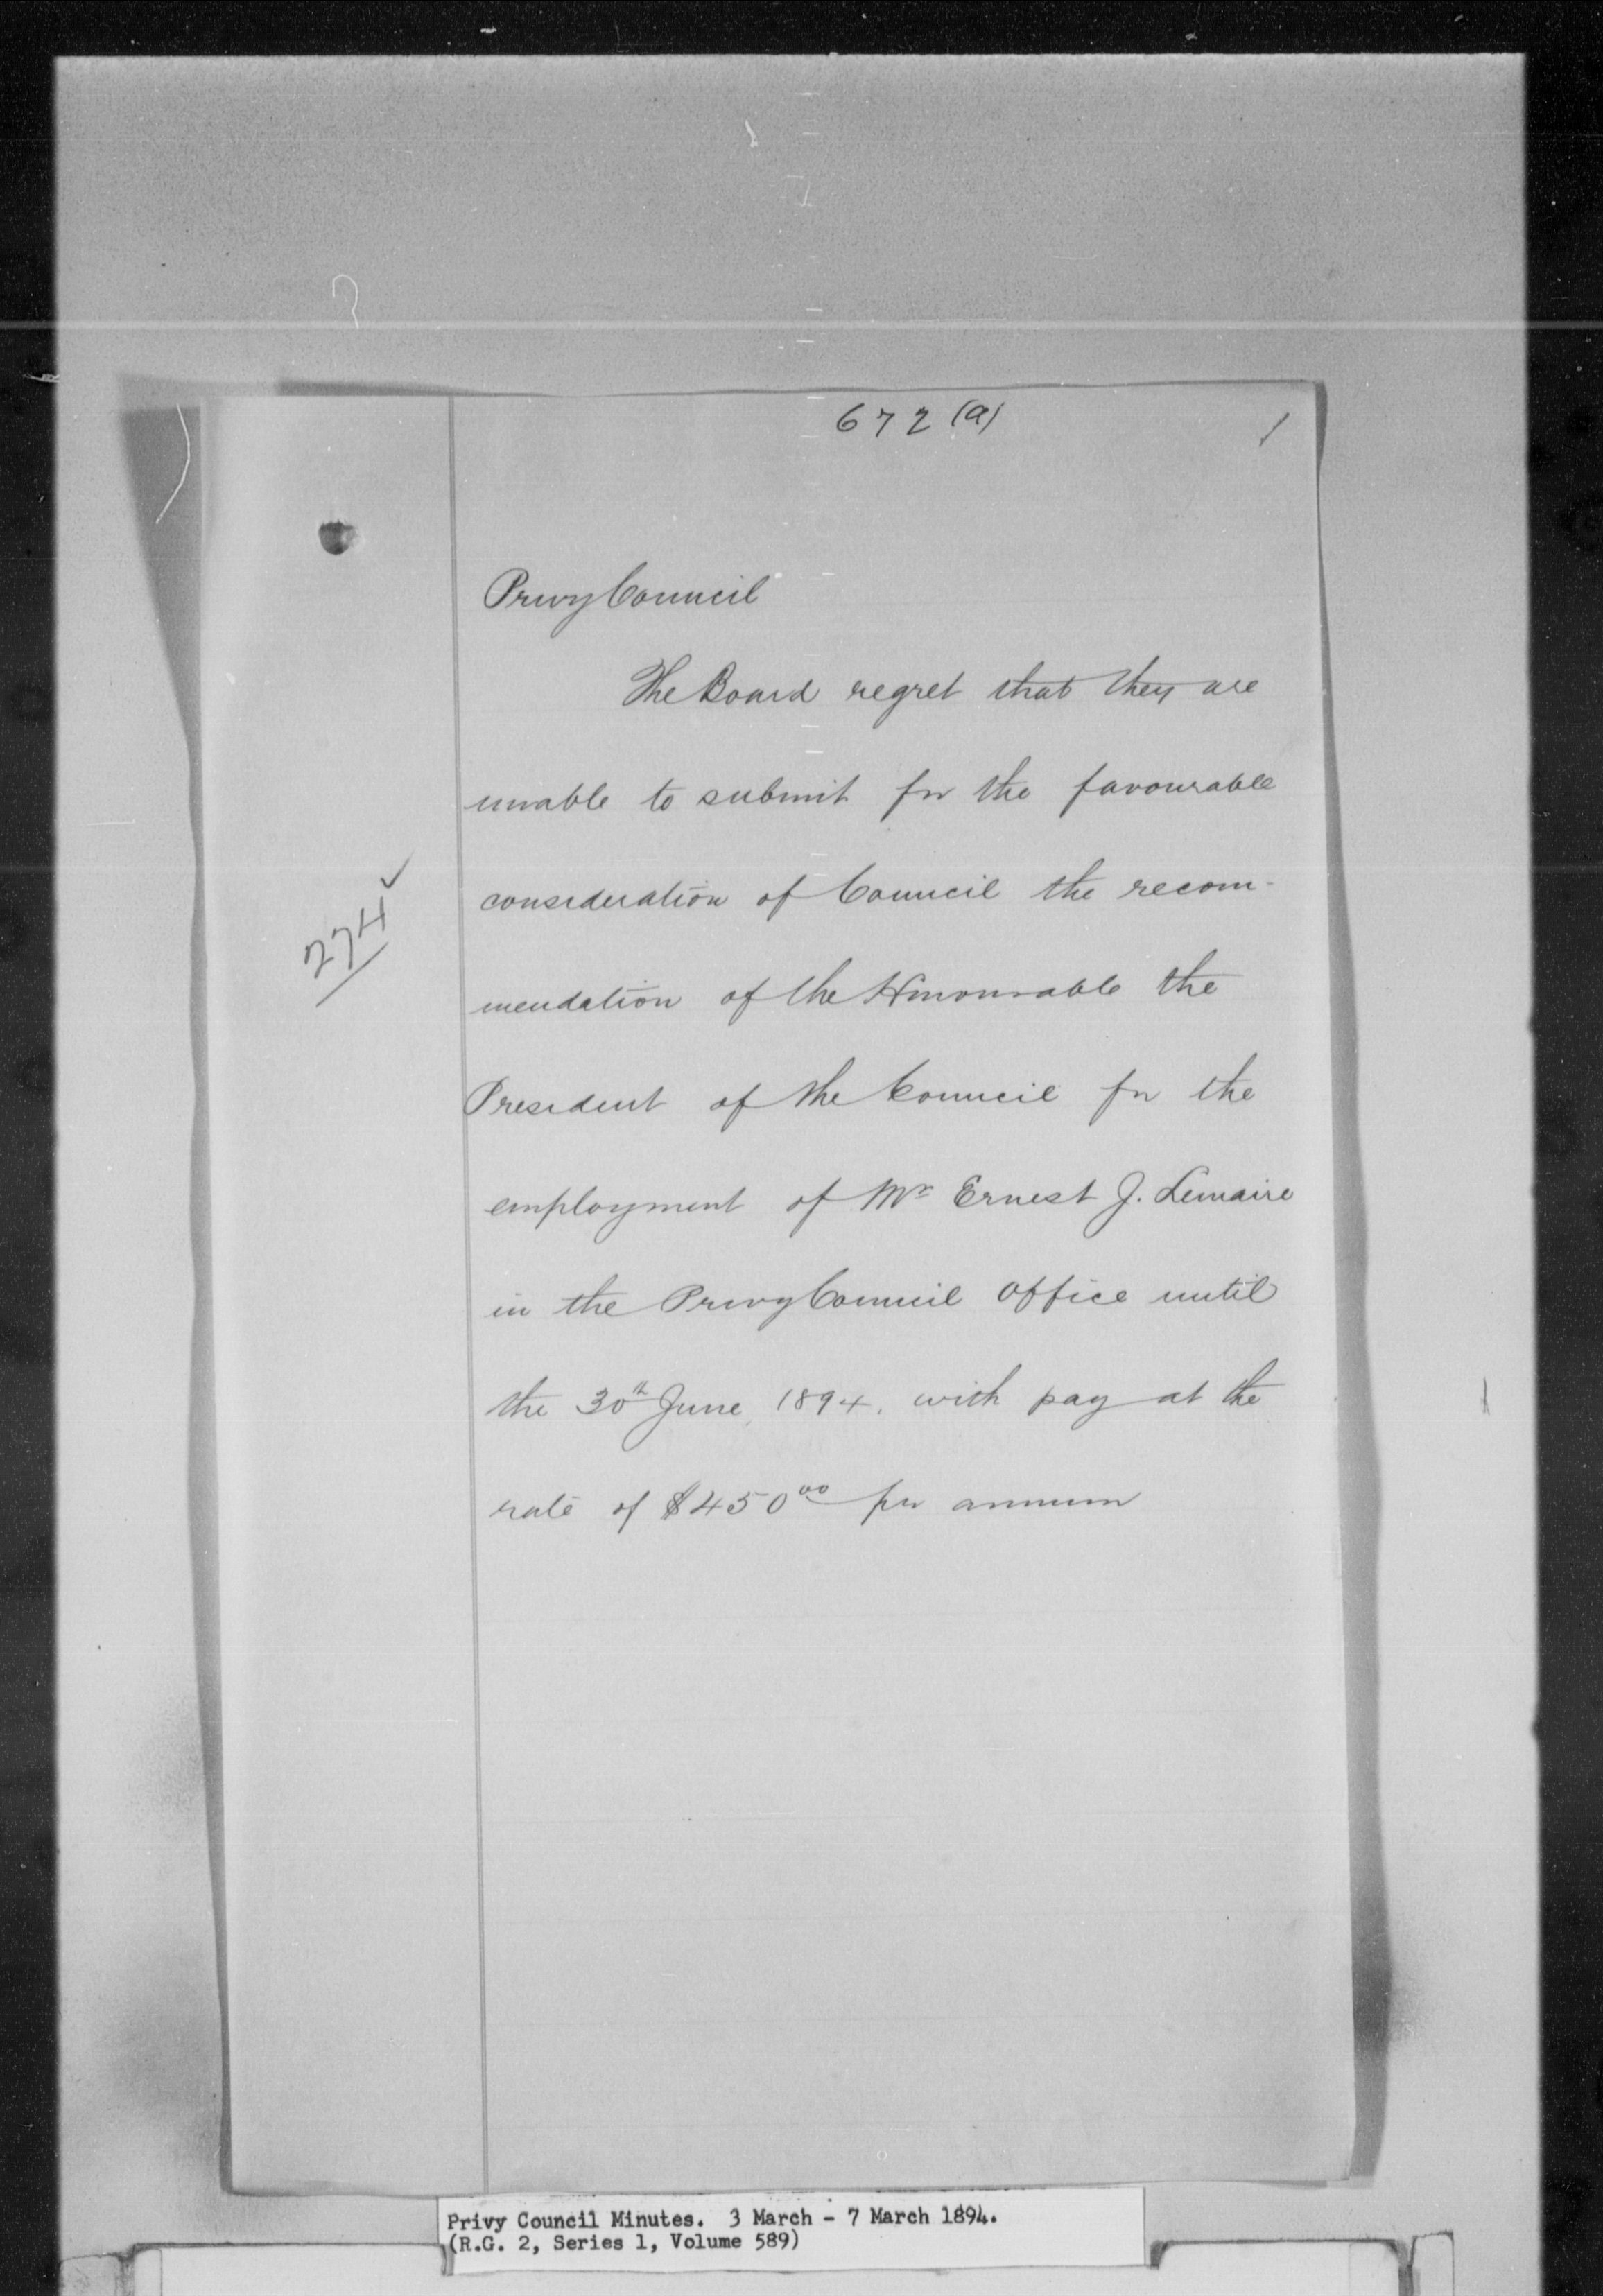 672 (a)
1
Privy Council
The Board regret that they are
unable to submit for the favourable
consideration of Council the recom-
274 ✓
mendation of the Honourable the
President of the Council for the
employment of Mr Ernest J. Lemaire
in the Privy Council Office until
the 30th June, 1894, with pay at the
rate of $450 00 per annum
Privy Council Minutes. 3 March - 7 March 1894.
(R.G. 2, Series 1, Volume 589)